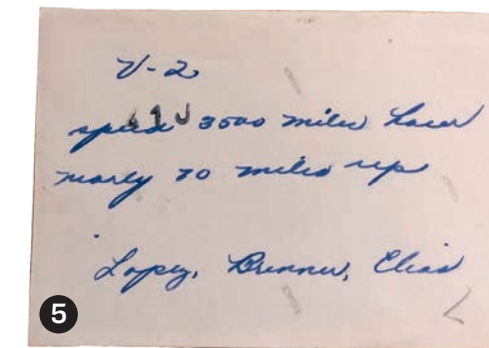 V-2
speed 3500 miles hour
nearly 70 miles up
Lopez, Brenner, Elias
5